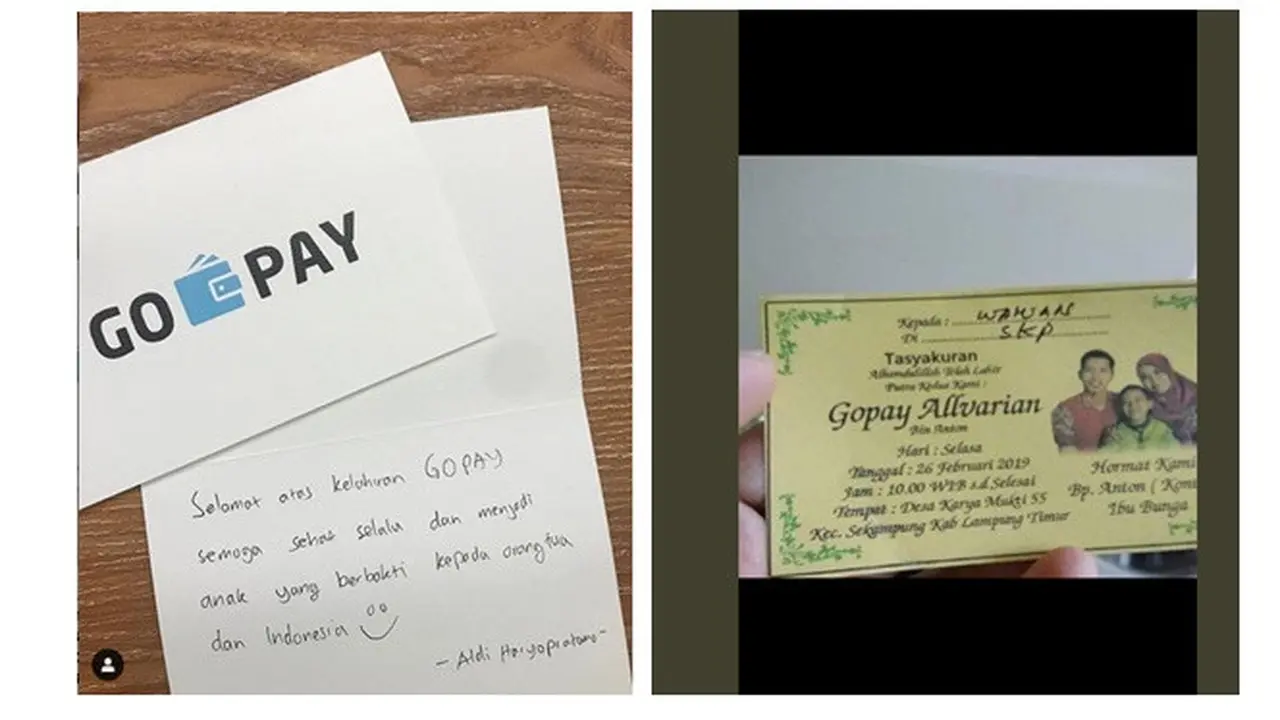 GO PAY
Selamat atas kelahiran GOPAY
semoga sehat selalu dan menjadi
anak yang berbakti kepada orang tua
dan Indonesia
- Aldi Haryopratomo -
Kepada : WAWAN
Di SKP
Tasyakuran
Alhamdulillah Telah Lahir
Putra Kedua Kami :
Gopay Allvarian
Bin Anton
Hari : Selasa
Tanggal : 26 Februari 2019
Jam : 10.00 WIB s.d.Selesai
Tempat : Desa Karya Mukti 55
Kec. Sekampung Kab Lampung Timur
Hormat Kami
Bp. Anton (
Ibu Bunga